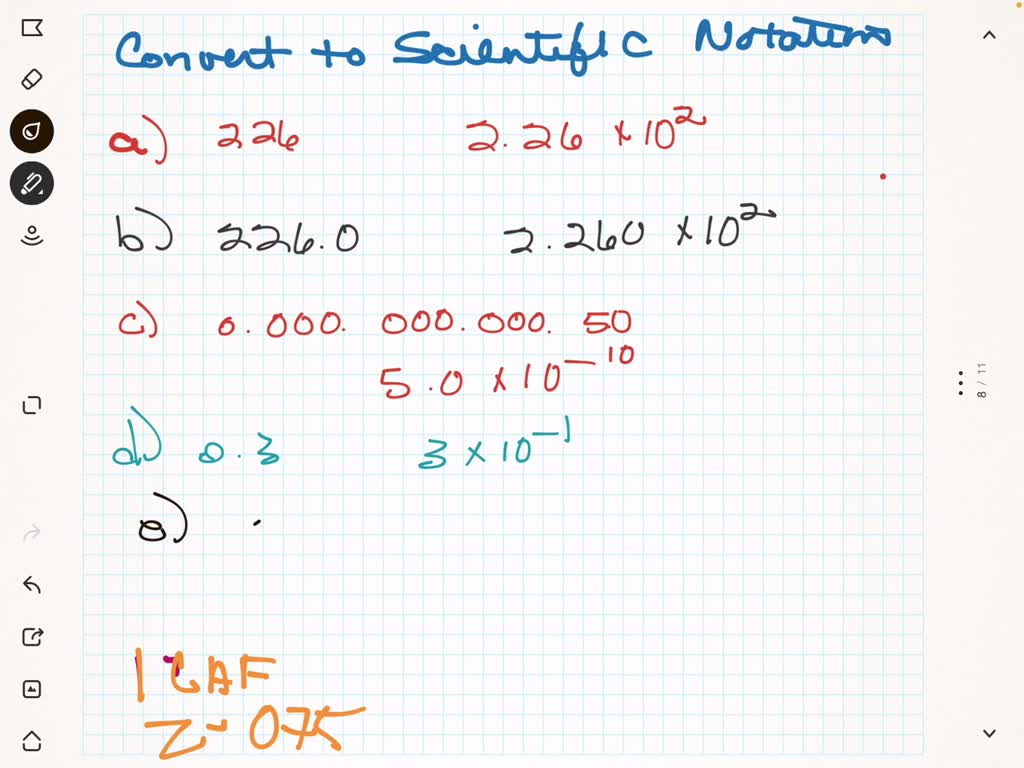 Convert to Scientific Notations
a) 226 2.26 × 10²
b) 226.0 2.260 × 10²
c) 0.000. 000.000. 50
5.0 × 10⁻¹⁰
d) 0.3 3 × 10⁻¹
e) .
8 / 11
Z-075